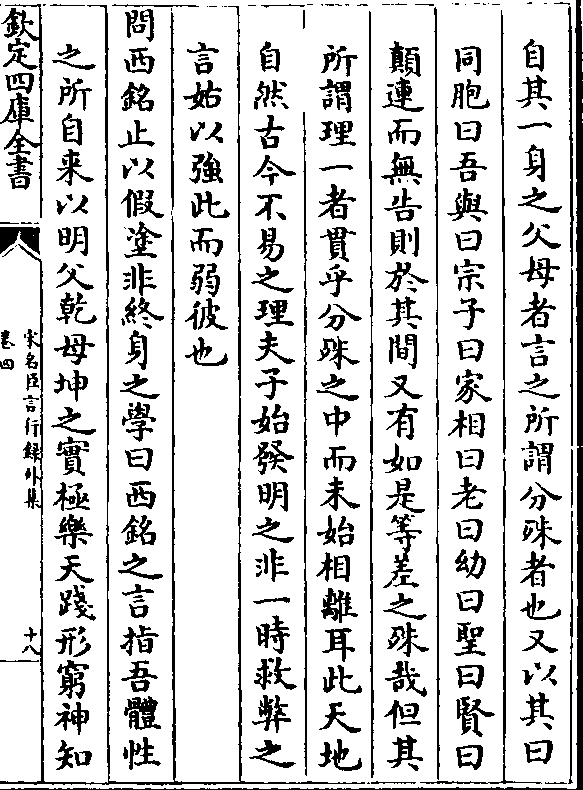 自其一身之父母者言之所謂分殊者也又以其曰
同胞曰吾與曰宗子曰家相曰老曰幼曰聖曰賢曰
顛連而無告則於其間又有如是等差之殊哉但其
所謂理一者貫乎分殊之中而未始相離耳此天地
自然古今不易之理夫子始發明之非一時救弊之
言姑以強此而弱彼也
問西銘止以假塗非終身之學曰西銘之言指吾體性
之所自来以明父乾母坤之實極樂天踐形窮神知
欽定四庫全書
宋名臣言行録外集
卷四
十八